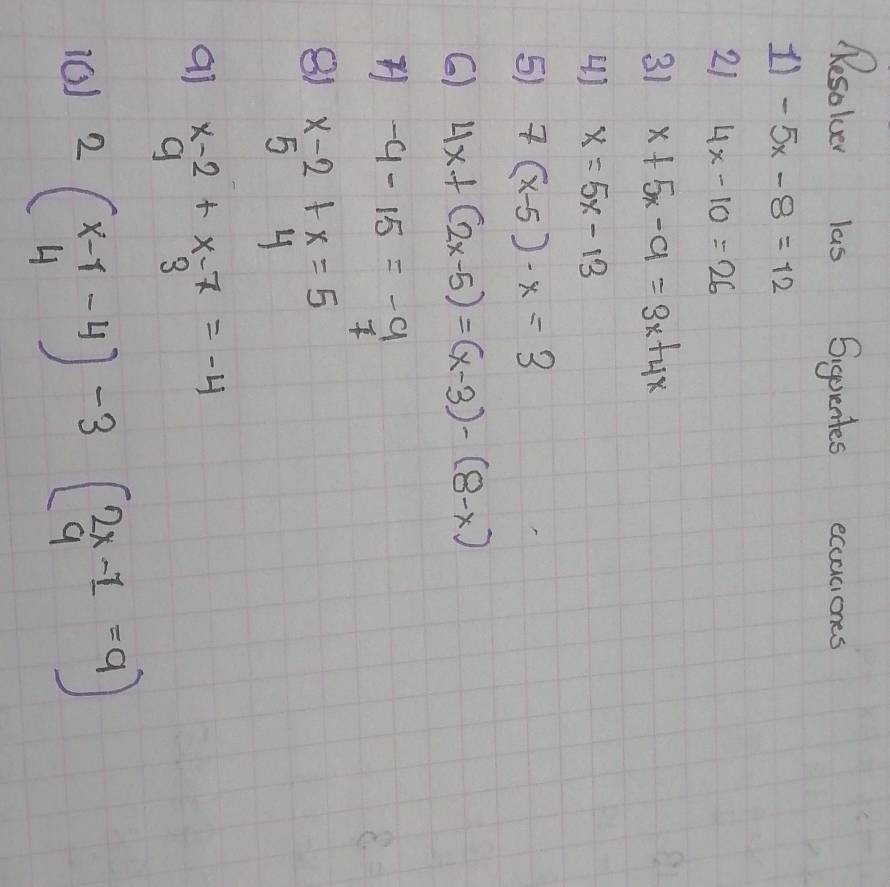 Resolver las Siguientes ecuaciones
1) -5x-8=12
2) 4x-10=26
3) x+5x-9=3x+4x
4) x=5x-13
5) 7(x-5)-x=3
6) 4x+(2x-5)=(x-3)-(8-x)
7) -9-15=-9
7
8) x-2+x=5
5 4
9) x-2+x-7=-4
9 3
10) 2(x-1-4)-3(2x-1=9)
4 9